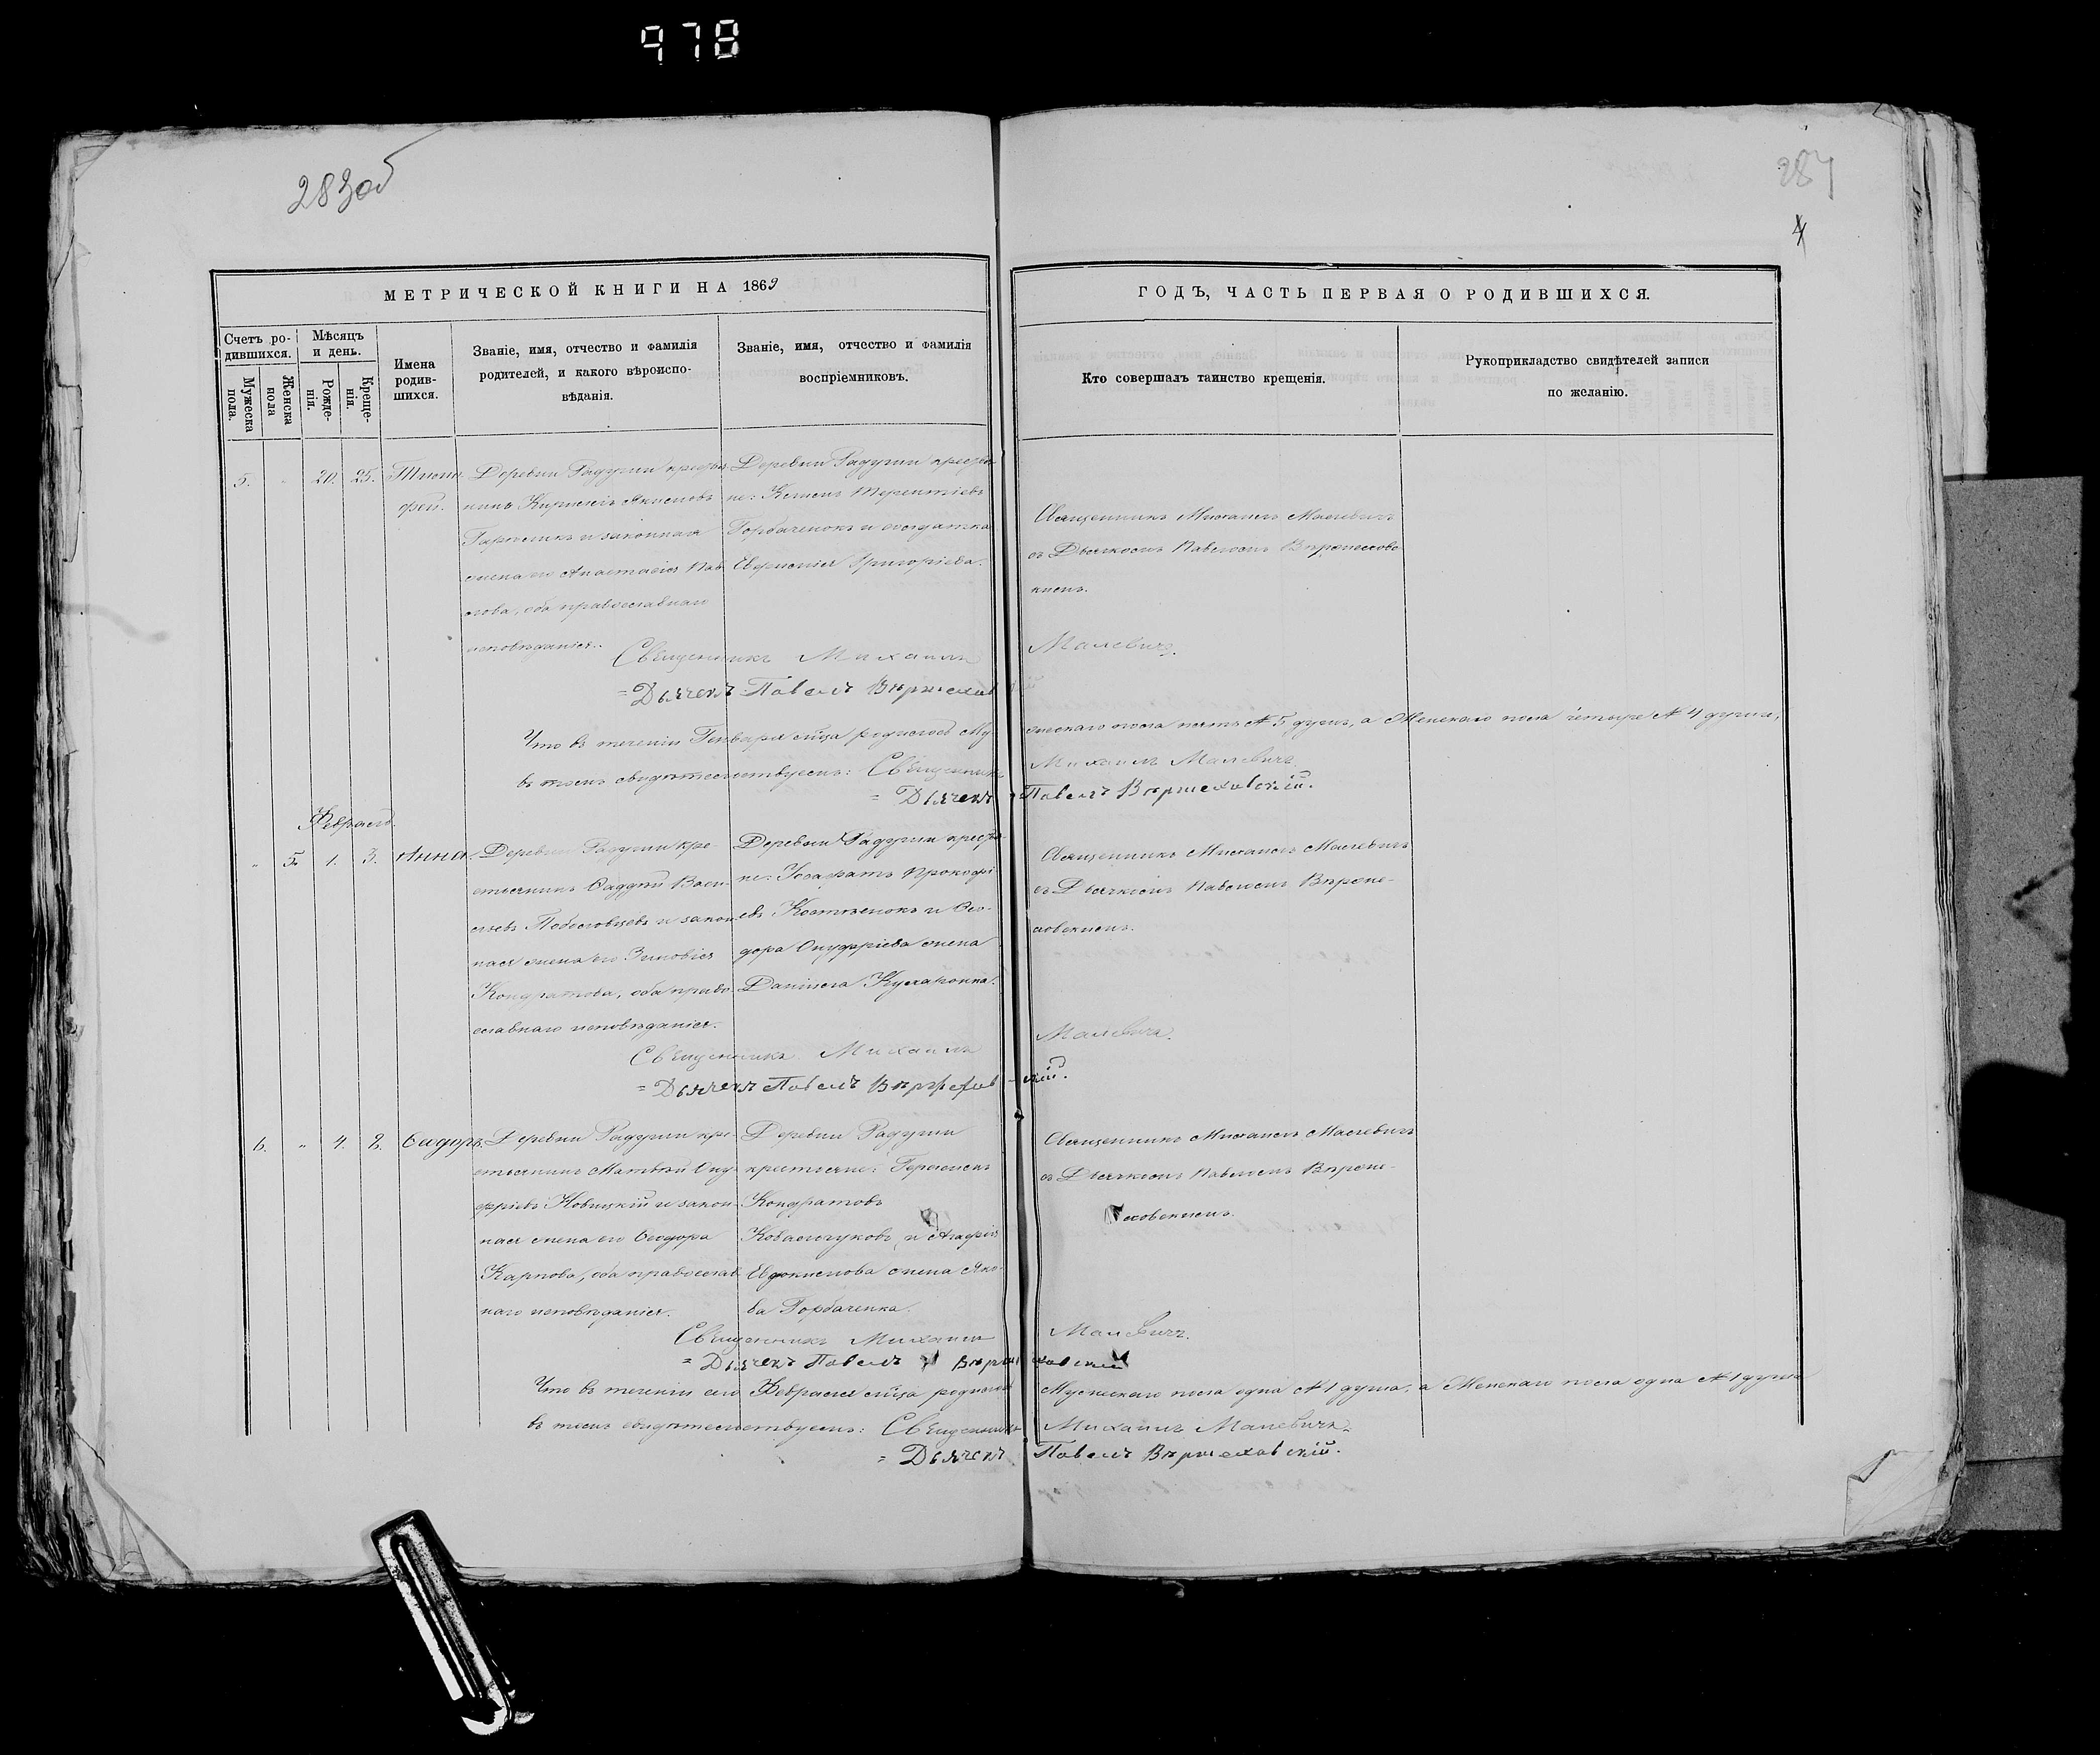 978
283об
284
4
МЕТРИЧЕСКОЙ КНИГИ НА 1869
ГОДЪ, ЧАСТЬ ПЕРВАЯ О РОДИВШИХСЯ.
Счетъ ро-
дившихся.
Мужеска
пола.
Женска
пола
Мѣсяцъ
и день.
Рожде-
нія.
Креще-
нія.
Имена
родив-
шихся.
Званіе, имя, отчество и фамилія
родителей, и какого вѣроиспо-
вѣданія.
Званіе, имя, отчество и фамилія
воспріемниковъ.
Кто совершалъ таинство крещенія.
Рукоприкладство свидѣтелей записи
по желанію.
5. " 20. 25.
Тимо-
фей.
Деревни Радучи крестья-
нинъ
и законная
жена его Анастасія Пав-
лова, оба православнаго
исповѣданія.
Деревни Радучи крестья-
не: Терентіевъ
Горбаченокъ и солдатка
Евфимія Григоріева.
Священникъ Михаилъ Малевичъ
съ Дьячкомъ Павломъ
кимъ.
Священникъ Михаилъ Малевичъ.
= Дьячекъ Павелъ
Что въ теченіи Генваря м̃ца родилось Му-
жескаго пола пять № 5 душъ, а Женскаго пола четыре № 4 души,
въ томъ свидѣтельствуемъ: Священникъ Михаилъ Малевичъ
= Дьячекъ Павелъ Вержеховскій.
Февраль.
" 5. 1. 3. Анна.
Деревни Радучи кре-
стьянинъ Фаддей Васи-
льевъ и закон-
ная жена его Зиновія
Кондратова, оба право-
славнаго исповѣданія.
Деревни Радучи крестья-
не: Іосафатъ Прокофі-
евъ и Фео-
дора Онуфріева жена
Даніила
Священникъ Михаилъ Малевичъ
съ Дьячкомъ Павломъ Верже-
ховскимъ.
Священникъ Михаилъ Малевичъ.
= Дьячекъ Павелъ Вержехов-скій.
6. " 4. 8. Сидоръ.
Деревни Радучи кре-
стьянинъ Матвѣй Ону-
фріевъ Новицкій и закон-
ная жена его Феодора
Карпова, оба православ-
наго исповѣданія.
Деревни Радучи
крестьяне: Герасимъ
Кондратовъ
Ковальчуковъ, и Агафія
Евдокимова жена Яко-
ва Горбаченка.
Священникъ Михаилъ Малевичъ
съ Дьячкомъ Павломъ Верже-
ховскимъ.
Священникъ Михаилъ Малевичъ.
= Дьячекъ Павелъ Вержеховскій
Что въ теченіи сего Февраля м̃ца родилось Мужескаго пола одна № 1 душа, а Женскаго пола одна № 1 душа
въ томъ свидѣтельствуемъ: Священникъ Михаилъ Малевичъ.
= Дьячекъ Павелъ Вержеховскій.